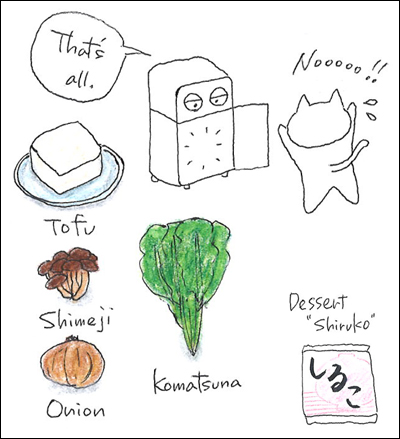 That's
all.
Nooooo!!
Tofu
Shimeji
Onion
Komatsuna
Dessert
"Shiruko"
しるこ